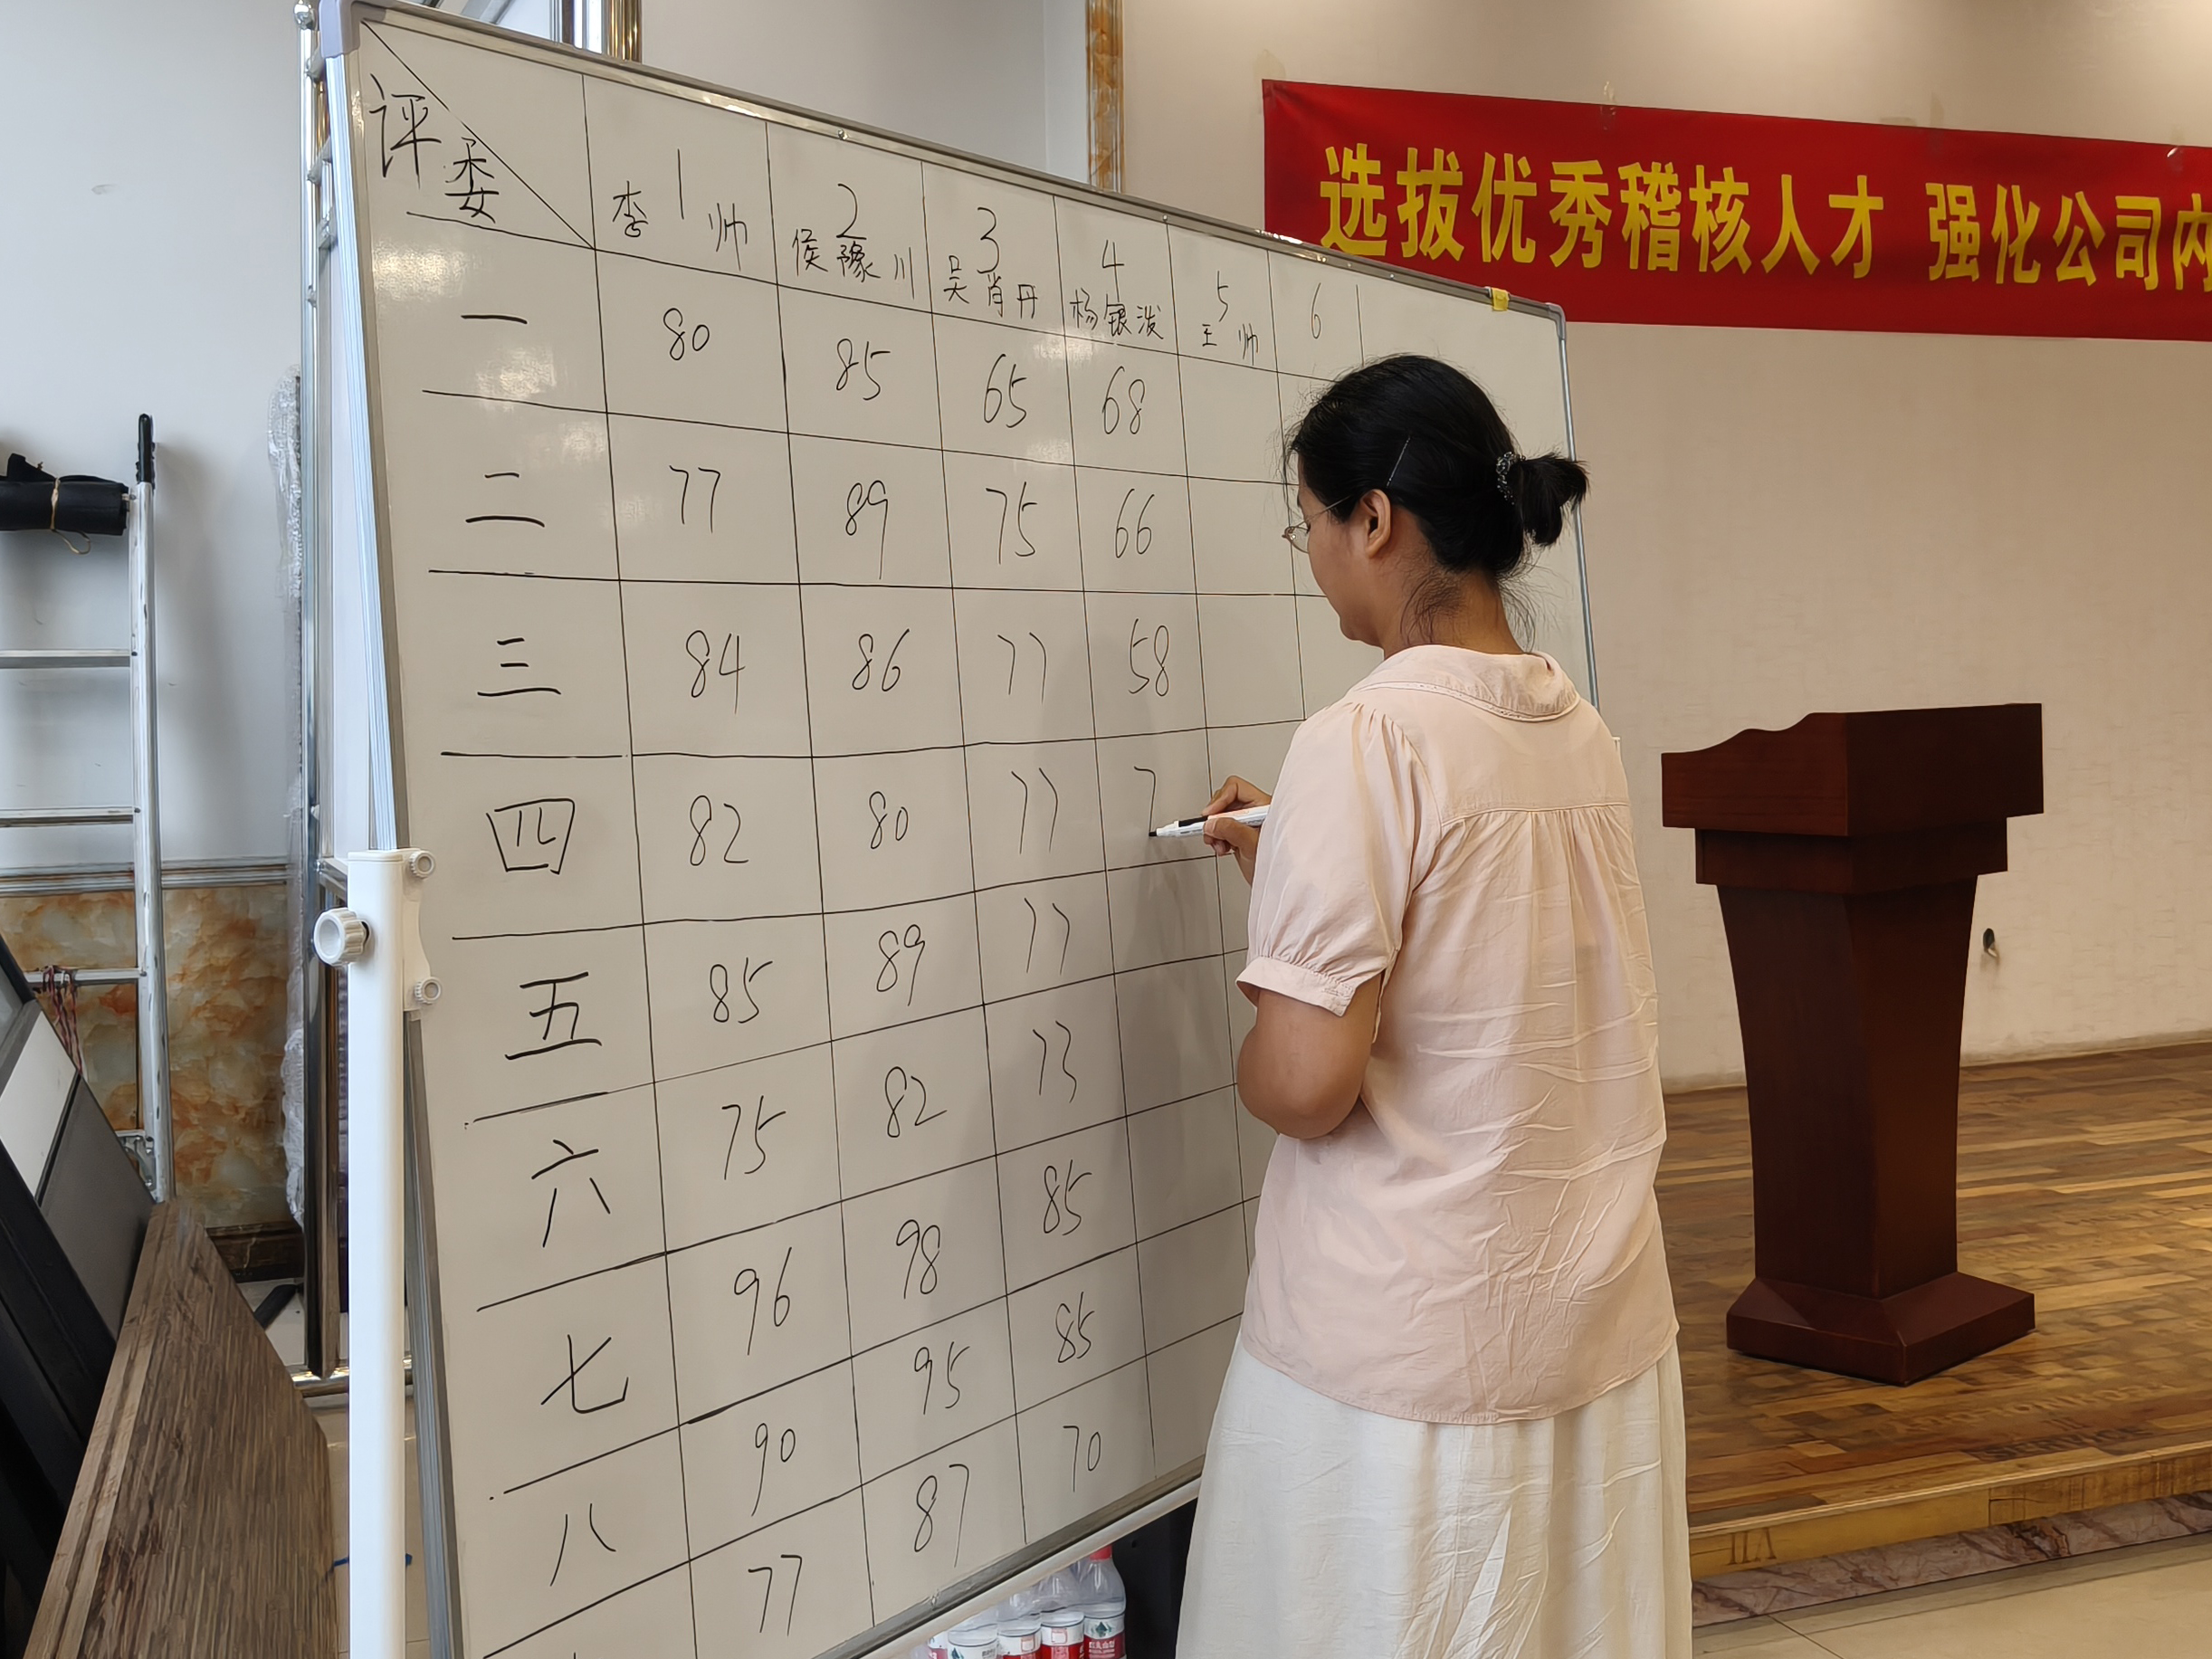 选拔优秀稽核人才 强化公司内
评委 1 2 3 4 5 6
李帅 侯豫川 吴肖丹 杨银泼 王帅
一 80 85 65 68
二 77 89 75 66
三 84 86 77 58
四 82 80 77 7
五 85 89 77
六 75 82 73
七 96 98 85
八 90 95 85
77 87 70